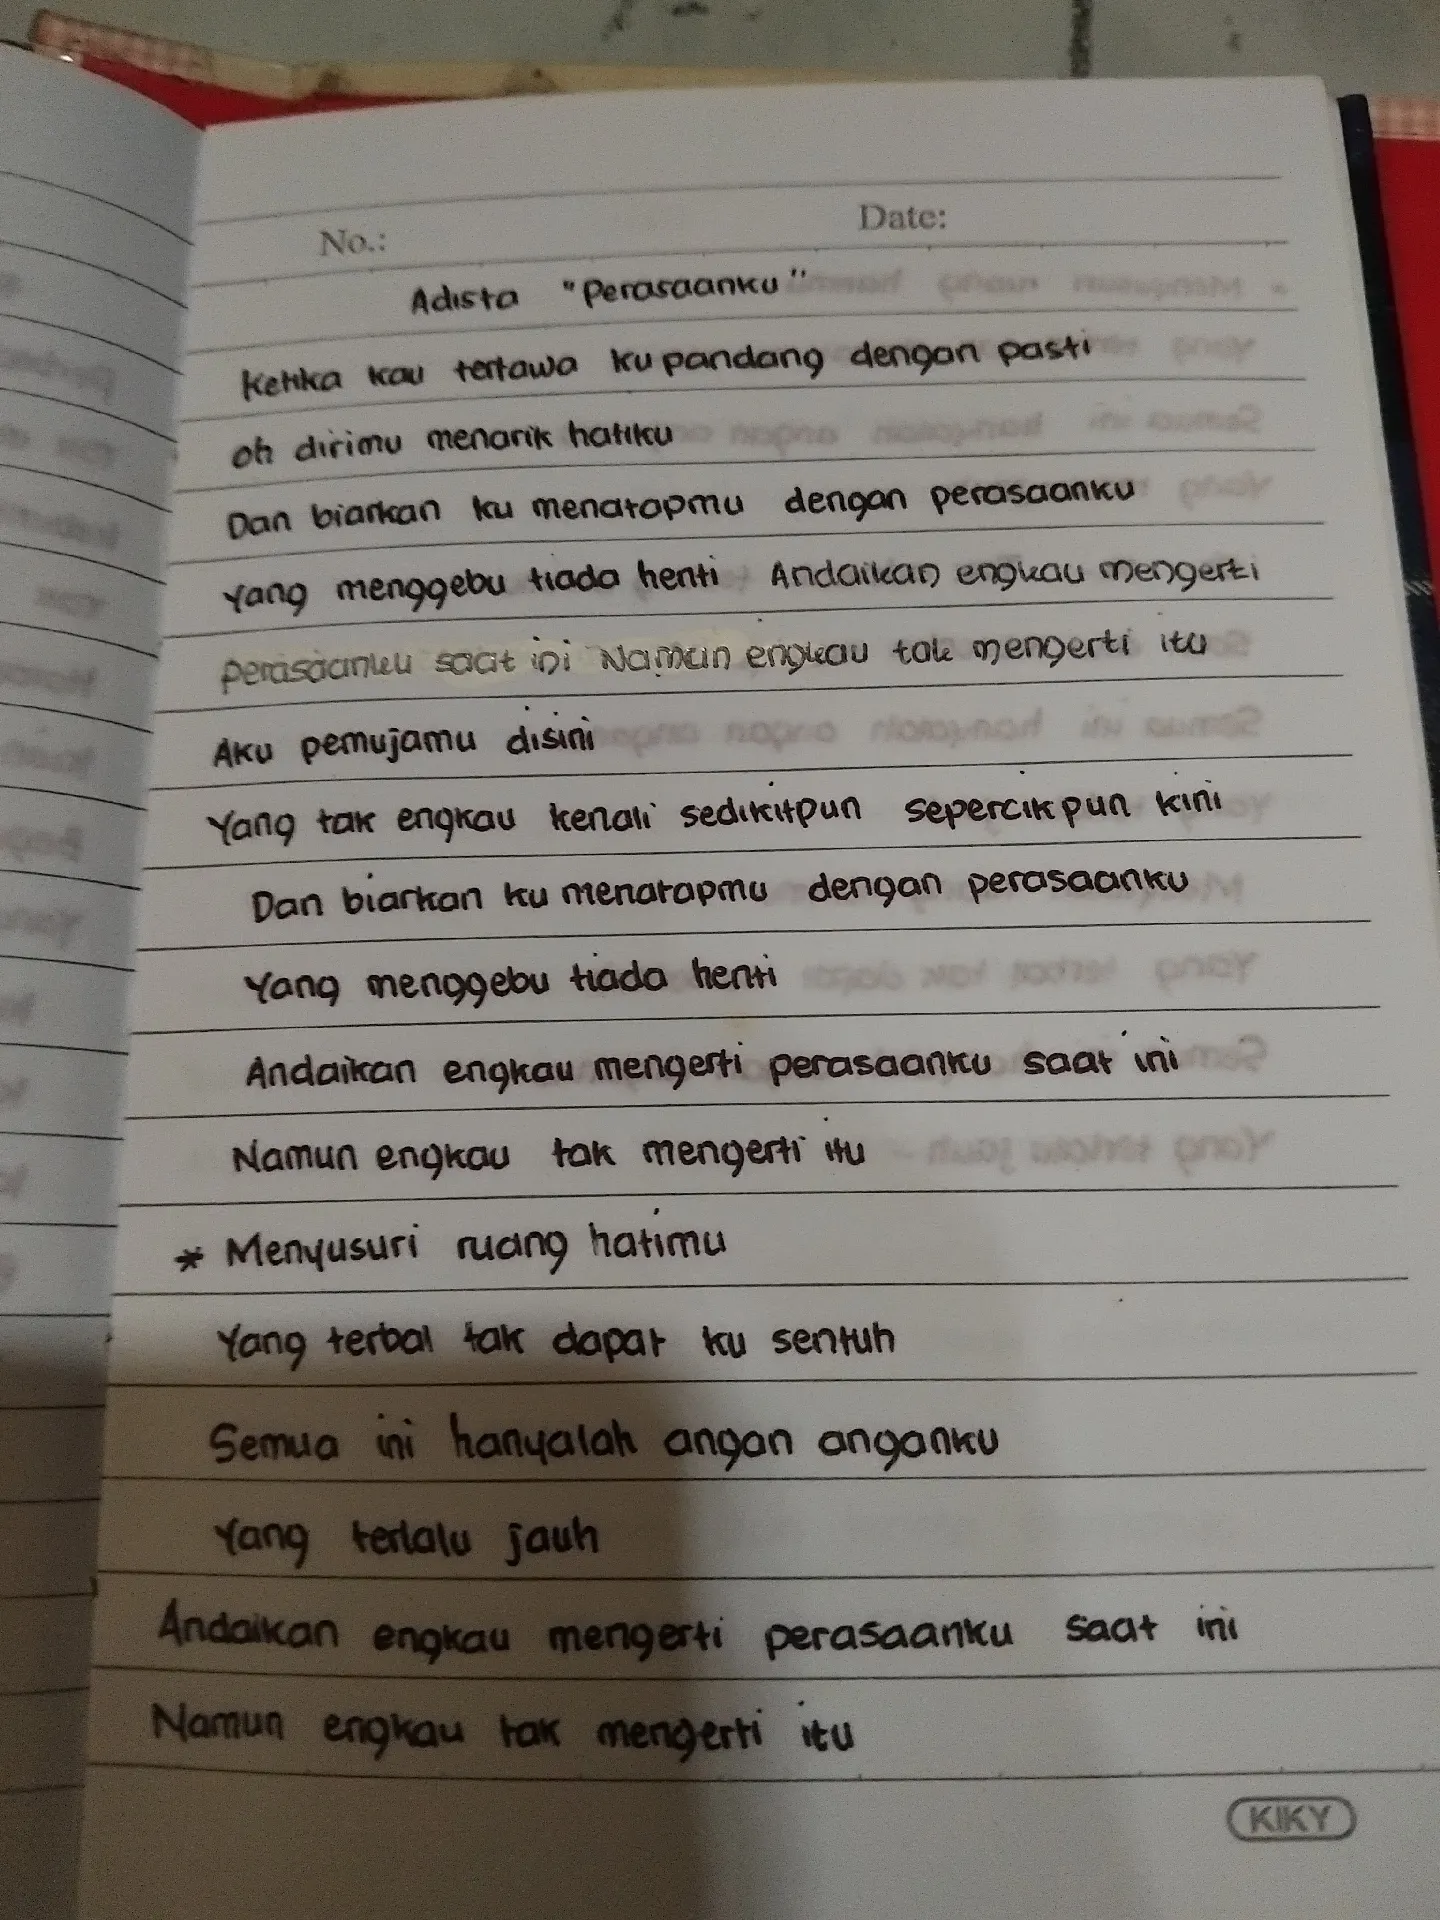 No.:
Date:
Adista "Perasaanku"
Ketika kau tertawa ku pandang dengan pasti
oh dirimu menarik hatiku
Dan biarkan ku menatapmu dengan perasaanku
Yang menggebu tiada henti Andaikan engkau mengerti
perasaanku saat ini Namun engkau tak mengerti itu
Aku pemujamu disini
Yang tak engkau kenali sedikitpun sepercikpun kini
Dan biarkan ku menatapmu dengan perasaanku
Yang menggebu tiada henti
Andaikan engkau mengerti perasaanku saat ini
Namun engkau tak mengerti itu
* Menyusuri ruang hatimu
Yang terbal tak dapat ku sentuh
Semua ini hanyalah angan anganku
Yang terlalu jauh
Andaikan engkau mengerti perasaanku saat ini
Namun engkau tak mengerti itu
KIKY